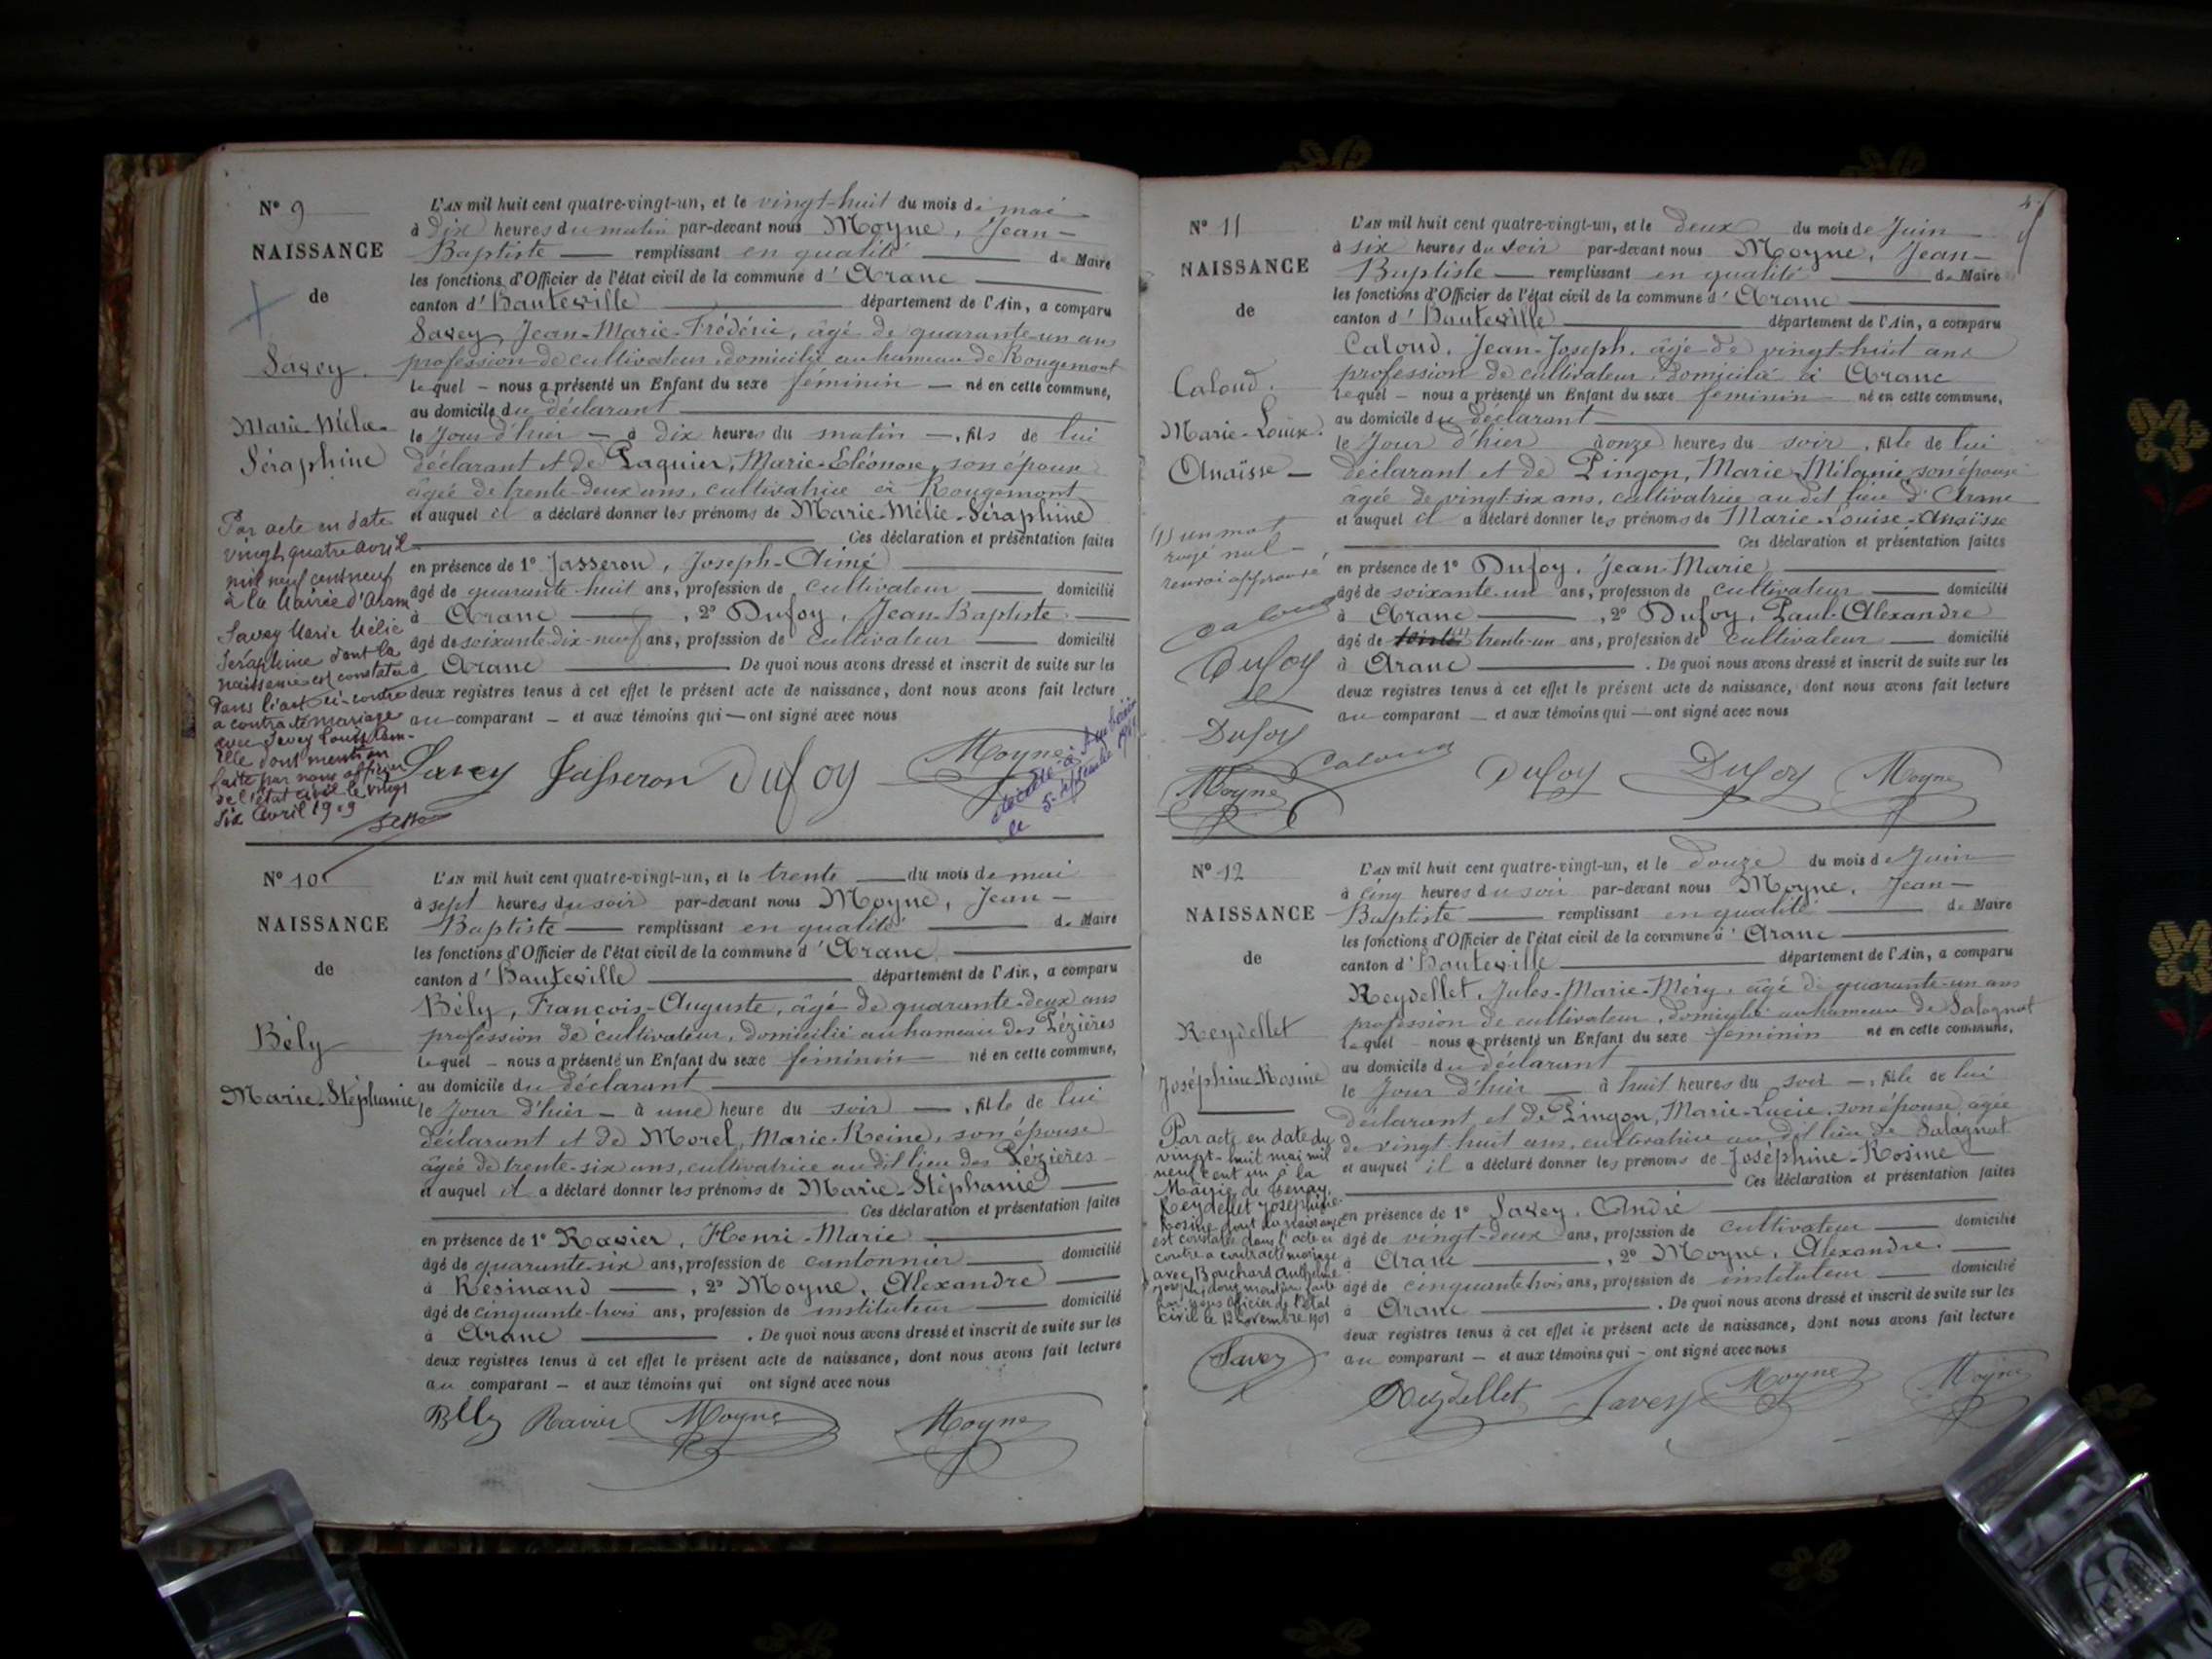 Nº 9
NAISSANCE
de
Savey.
Marie-Mélie-
Séraphine
Par acte en date
vingt quatre avril
mil neuf cent neuf
à la Mairie d'Aranc
Savey Marie Mélie
Séraphine dont la
naissance est constatée
dans l'acte ci-contre
a contracté mariage
avec Savey Louis
dont mention
faite par nous officier
de l'état civil le vingt
six avril 1909
L'AN mil huit cent quatre-vingt-un, et le vingt-huit du mois de mai
à dix heures du matin par-devant nous Moyne, Jean-
Baptiste — remplissant en qualité — de Maire
les fonctions d'Officier de l'état civil de la commune d'Aranc
canton d'Hauteville — département de l'Ain, a comparu
Savey, Jean-Marie-Frédéric, âgé de quarante-un ans
profession de cultivateur, domicilié au hameau de Rougemont
lequel — nous a présenté un Enfant du sexe féminin — né en cette commune,
au domicile du déclarant
le jour d'hier — à dix heures du matin —, fils de lui
déclarant et de Paquier, Marie-Eléonore, son épouse
âgée de trente-deux ans, cultivatrice à Rougemont
et auquel il a déclaré donner les prénoms de Marie-Mélie-Séraphine
Ces déclaration et présentation faites
en présence de 1º Jasseron, Joseph-Aimé
âgé de quarante-huit ans, profession de cultivateur — domicilié
à Aranc —, 2º Dufoy, Jean-Baptiste
âgé de soixante-dix-neuf ans, profession de cultivateur — domicilié
à Aranc — De quoi nous avons dressé et inscrit de suite sur les
deux registres tenus à cet effet le présent acte de naissance, dont nous avons fait lecture
au comparant — et aux témoins qui — ont signé avec nous
Savey Jasseron Dufoy Moyne
décédée à
le 5 septembre
Nº 10
NAISSANCE
de
Bély
Marie-Stéphanie
L'AN mil huit cent quatre-vingt-un, et le trente — du mois de mai
à sept heures du soir par-devant nous Moyne, Jean-
Baptiste — remplissant en qualité — de Maire
les fonctions d'Officier de l'état civil de la commune d'Aranc
canton d'Hauteville — département de l'Ain, a comparu
Bély, François-Auguste, âgé de quarante-deux ans
profession de cultivateur, domicilié au hameau des Pézières
lequel — nous a présenté un Enfant du sexe féminin — né en cette commune,
au domicile du déclarant
le jour d'hier — à une heure du soir —, fille de lui
déclarant et de Morel, Marie-Reine, son épouse
âgée de trente-six ans, cultivatrice au dit lieu des Pézières
et auquel il a déclaré donner les prénoms de Marie-Stéphanie
Ces déclaration et présentation faites
en présence de 1º Ravier, Henri-Marie
âgé de quarante-six ans, profession de cantonnier — domicilié
à Résinand —, 2º Moyne, Alexandre
âgé de cinquante-trois ans, profession de instituteur — domicilié
à Aranc — . De quoi nous avons dressé et inscrit de suite sur les
deux registres tenus à cet effet le présent acte de naissance, dont nous avons fait lecture
au comparant — et aux témoins qui ont signé avec nous
Bély Ravier Moyne Moyne
Nº 11
NAISSANCE
de
Caloud.
Marie-Louise-
Anaïsse —
(1) un mot
rayé nul —
renvoi approuvé
Caloud
Dufoy
Dufoy
Moyne
L'AN mil huit cent quatre-vingt-un, et le deux du mois de Juin
à six heures du soir par-devant nous Moyne, Jean-
Baptiste — remplissant en qualité — de Maire
les fonctions d'Officier de l'état civil de la commune d'Aranc
canton d'Hauteville — département de l'Ain, a comparu
Caloud, Jean-Joseph, âgé de vingt-huit ans
profession de cultivateur, domicilié à Aranc
lequel — nous a présenté un Enfant du sexe féminin — né en cette commune,
au domicile du déclarant
le jour d'hier à onze heures du soir, fille de lui
déclarant et de Pingon, Marie-Mélanie, son épouse
âgée de vingt-six ans, cultivatrice au dit lieu d'Aranc
et auquel il a déclaré donner les prénoms de Marie-Louise-Anaïsse
Ces déclaration et présentation faites
en présence de 1º Dufoy, Jean-Marie
âgé de soixante-un ans, profession de cultivateur — domicilié
à Aranc —, 2º Dufoy, Paul-Alexandre
âgé de (1) trente-un ans, profession de cultivateur — domicilié
à Aranc — . De quoi nous avons dressé et inscrit de suite sur les
deux registres tenus à cet effet le présent acte de naissance, dont nous avons fait lecture
au comparant — et aux témoins qui — ont signé avec nous
Caloud Dufoy Dufoy Moyne
Nº 12
NAISSANCE
de
Reydellet
Joséphine-Rosine
Par acte en date du
vingt-huit mai mil
neuf cent un à la
Mairie de Tenay,
Reydellet Joséphine
Rosine dont la naissance
est constatée dans l'acte ci
contre a contracté mariage
avec Bouchard Anthelme
Joseph, dont mention faite
par nous officier de l'état
civil le 12 novembre 1901
Savey
L'AN mil huit cent quatre-vingt-un, et le douze du mois de Juin
à cinq heures du soir par-devant nous Moyne, Jean-
Baptiste — remplissant en qualité — de Maire
les fonctions d'Officier de l'état civil de la commune d'Aranc
canton d'Hauteville — département de l'Ain, a comparu
Reydellet, Jules-Marie-Méry, âgé de quarante-un ans
profession de cultivateur, domicilié au hameau de Salagnat
lequel nous a présenté un Enfant du sexe féminin né en cette commune,
au domicile du déclarant
le jour d'hier — à huit heures du soir —, fille de lui
déclarant et de Pingon, Marie-Lucie, son épouse, âgée
de vingt-huit ans, cultivatrice au dit lieu de Salagnat
et auquel il a déclaré donner les prénoms de Joséphine-Rosine
Ces déclaration et présentation faites
en présence de 1º Savey, André
âgé de vingt-deux ans, profession de cultivateur — domicilié
à Aranc —, 2º Moyne, Alexandre.
âgé de cinquante-trois ans, profession de instituteur — domicilié
à Aranc — . De quoi nous avons dressé et inscrit de suite sur les
deux registres tenus à cet effet le présent acte de naissance, dont nous avons fait lecture
au comparant — et aux témoins qui — ont signé avec nous
Reydellet Savey Moyne Moyne